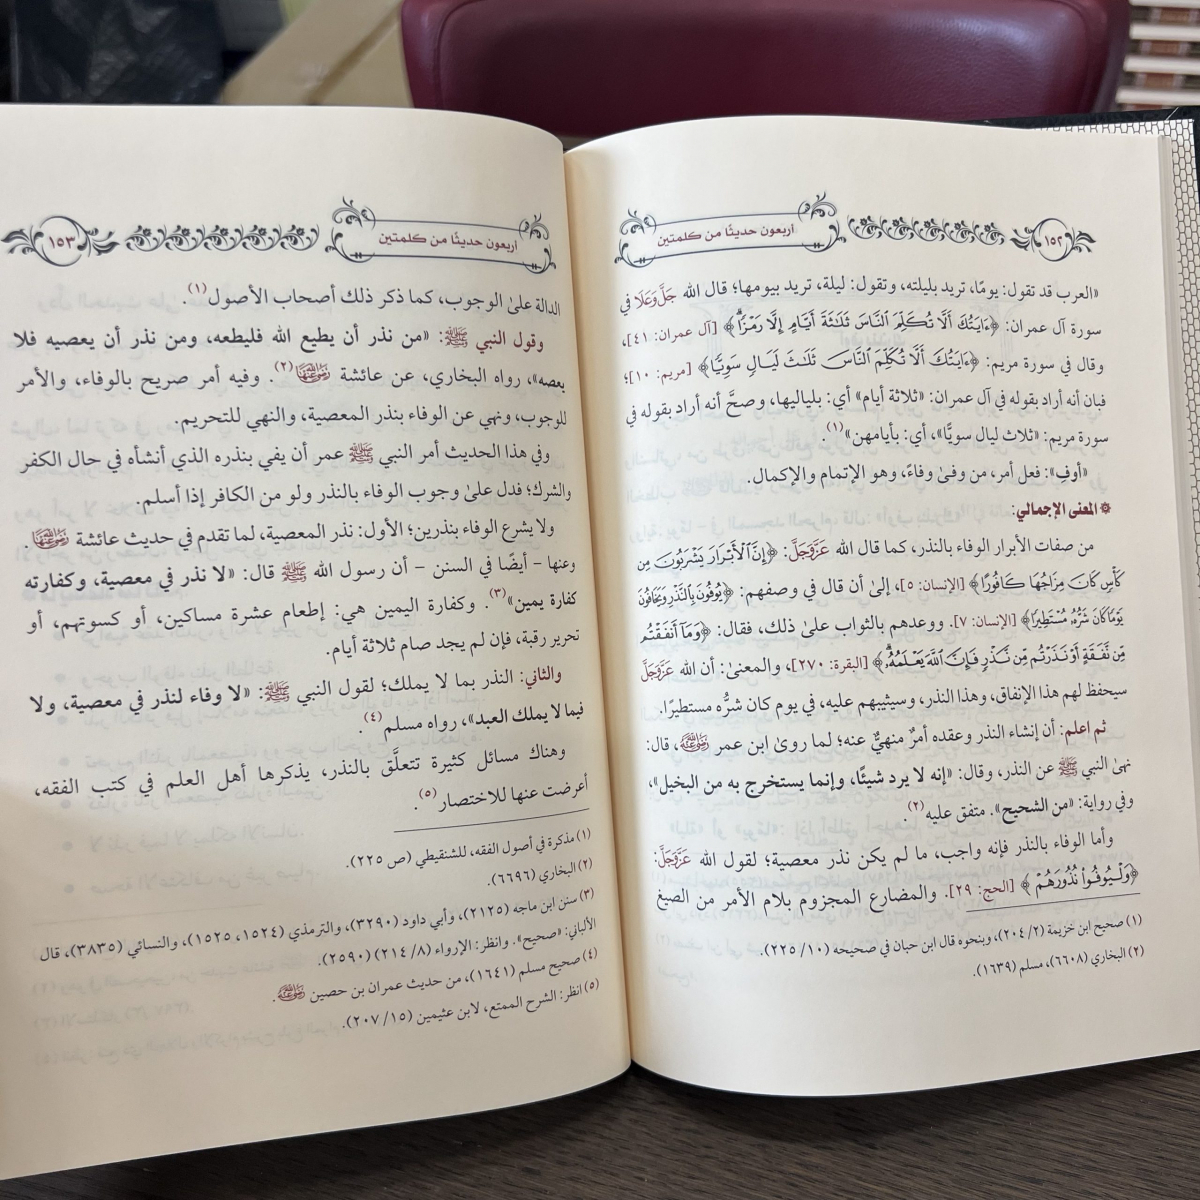 ١٥٢
اربعون حديثًا من كلمتين
«العرب قد تقول: يومًا، تريد بليلته، وتقول: ليلة، تريد بيومها؛ قال الله جَلَّوَعَلَا في
سورة آل عمران: ﴿ءَايَتُكَ أَلَّا تُكَلِّمَ ٱلنَّاسَ ثَلَٰثَةَ أَيَّامٍ إِلَّا رَمۡزٗاۗ﴾ [آل عمران: ٤١]،
وقال في سورة مريم: ﴿ءَايَتُكَ أَلَّا تُكَلِّمَ ٱلنَّاسَ ثَلَٰثَ لَيَالٖ سَوِيّٗا﴾ [مريم: ١٠]؛
فبان أنه أراد بقوله في آل عمران: «ثلاثة أيام» أي: بلياليها، وصحَّ أنه أراد بقوله في
سورة مريم: «ثلاث ليال سويًّا»، أي: بأيامهن»(١).
«أوفِ»: فعل أمر، من وفىٰ وفاءً، وهو الإتمام والإكمال.
❁ المعنى الإجمالي:
من صفات الأبرار الوفاء بالنذر، كما قال الله عَزَّوَجَلَّ: ﴿إِنَّ ٱلۡأَبۡرَارَ يَشۡرَبُونَ مِن
كَأۡسٖ كَانَ مِزَاجُهَا كَافُورًا﴾ [الإنسان: ٥]، إلىٰ أن قال في وصفهم: ﴿يُوفُونَ بِٱلنَّذۡرِ وَيَخَافُونَ
يَوۡمٗا كَانَ شَرُّهُۥ مُسۡتَطِيرٗا﴾ [الإنسان: ٧]. ووعدهم بالثواب علىٰ ذلك، فقال: ﴿وَمَآ أَنفَقۡتُم
مِّن نَّفَقَةٍ أَوۡ نَذَرۡتُم مِّن نَّذۡرٖ فَإِنَّ ٱللَّهَ يَعۡلَمُهُۥۗ﴾ [البقرة: ٢٧٠]، والمعنىٰ: أن الله عَزَّوَجَلَّ
سيحفظ لهم هذا الإنفاق، وهذا النذر، وسيثيبهم عليه، في يوم كان شرُّه مستطيرًا.
ثم اعلم: أن إنشاء النذر وعقده أمرٌ منهيٌّ عنه؛ لما روىٰ ابن عمر رَضِيَ اللَّهُ عَنْهُمَا، قال:
نهىٰ النبي ﷺ عن النذر، وقال: «إنه لا يرد شيئًا، وإنما يستخرج به من البخيل»،
وفي رواية: «من الشحيح». متفق عليه(٢).
وأما الوفاء بالنذر فإنه واجب، ما لم يكن نذر معصية؛ لقول الله عَزَّوَجَلَّ:
﴿وَلۡيُوفُواْ نُذُورَهُمۡ﴾ [الحج: ٢٩]. والمضارع المجزوم بلام الأمر من الصيغ
(١) صحيح ابن خزيمة (٢/ ٢٠٤)، وبنحوه قال ابن حبان في صحيحه (١٠/ ٢٢٥).
(٢) البخاري (٦٦٠٨)، مسلم (١٦٣٩).
اربعون حديثًا من كلمتين
١٥٣
الدالة علىٰ الوجوب، كما ذكر ذلك أصحاب الأصول(١).
وقول النبي ﷺ: «من نذر أن يطيع الله فليطعه، ومن نذر أن يعصيه فلا
يعصه»، رواه البخاري، عن عائشة رَضِيَ اللَّهُ عَنْهَا(٢). وفيه أمر صريح بالوفاء، والأمر
للوجوب، ونهي عن الوفاء بنذر المعصية، والنهي للتحريم.
وفي هذا الحديث أمر النبي ﷺ عمر أن يفي بنذره الذي أنشأه في حال الكفر
والشرك؛ فدل علىٰ وجوب الوفاء بالنذر ولو من الكافر إذا أسلم.
ولا يشرع الوفاء بنذرين؛ الأول: نذر المعصية، لما تقدم في حديث عائشة رَضِيَ اللَّهُ عَنْهَا.
وعنها – أيضًا في السنن – أن رسول الله ﷺ قال: «لا نذر في معصية، وكفارته
كفارة يمين»(٣). وكفارة اليمين هي: إطعام عشرة مساكين، أو كسوتهم، أو
تحرير رقبة، فإن لم يجد صام ثلاثة أيام.
والثاني: النذر بما لا يملك؛ لقول النبي ﷺ: «لا وفاء لنذر في معصية، ولا
فيما لا يملك العبد»، رواه مسلم(٤).
وهناك مسائل كثيرة تتعلَّق بالنذر، يذكرها أهل العلم في كتب الفقه،
أعرضت عنها للاختصار(٥).
(١) مذكرة في أصول الفقه، للشنقيطي (ص ٢٢٥).
(٢) البخاري (٦٦٩٦).
(٣) سنن ابن ماجه (٢١٢٥)، وأبي داود (٣٢٩٠)، والترمذي (١٥٢٤، ١٥٢٥)، والنسائي (٣٨٣٥)، قال
الألباني: «صحيح». وانظر: الإرواء (٨/ ٢١٤) (٢٥٩٠).
(٤) صحيح مسلم (١٦٤١)، من حديث عمران بن حصين رَضِيَ اللَّهُ عَنْهُ.
(٥) انظر: الشرح الممتع، لابن عثيمين (١٥/ ٢٠٧).